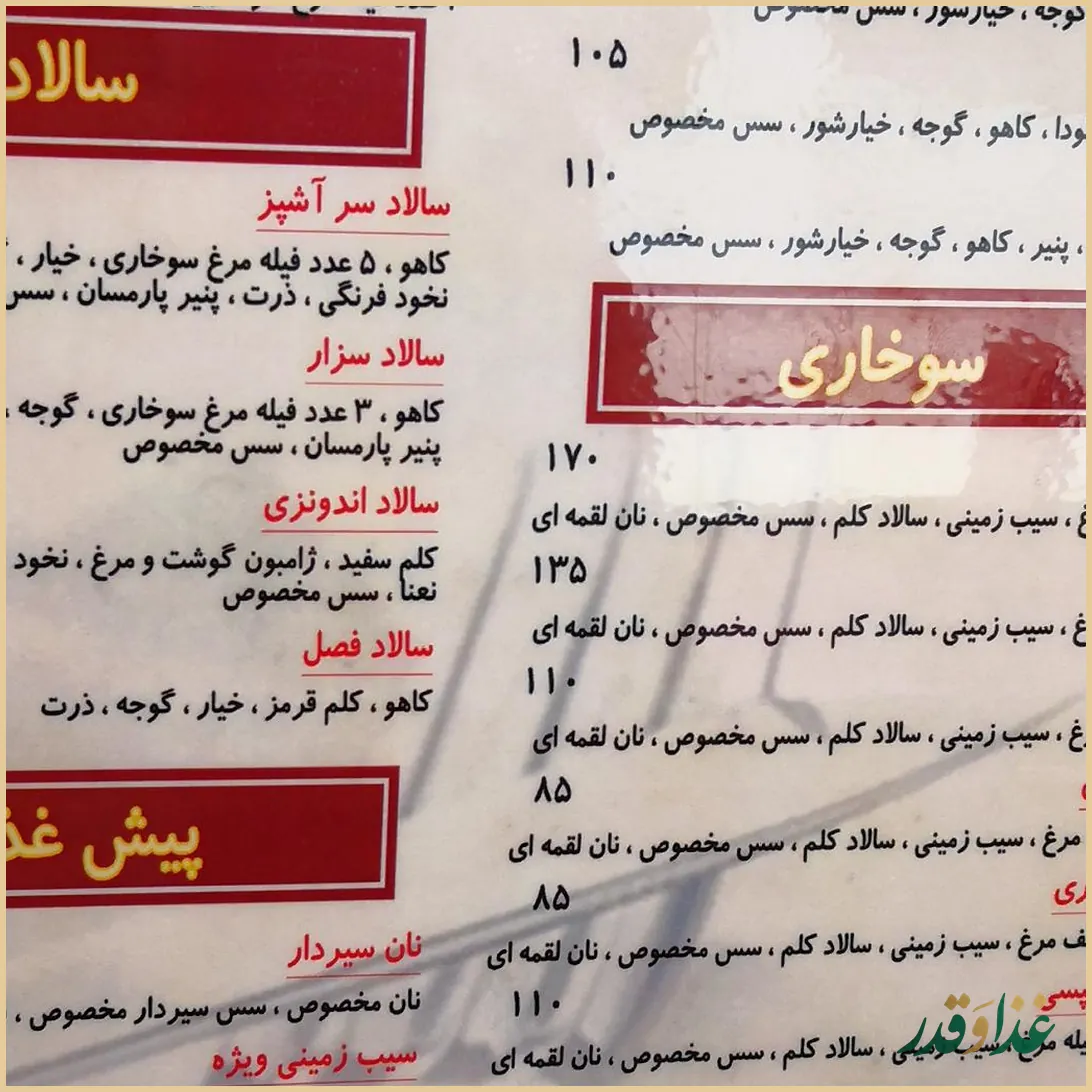 گوجه ، خیارشور ، سس مخصوص
۱۰۵
کاهو ، گوجه ، خیارشور ، سس مخصوص
۱۱۰
، پنیر ، کاهو ، گوجه ، خیارشور ، سس مخصوص
سوخاری
۱۷۰
، سیب زمینی ، سالاد کلم ، سس مخصوص ، نان لقمه ای
۱۳۵
، سیب زمینی ، سالاد کلم ، سس مخصوص ، نان لقمه ای
۱۱۰
، سیب زمینی ، سالاد کلم ، سس مخصوص ، نان لقمه ای
۸۵
مرغ ، سیب زمینی ، سالاد کلم ، سس مخصوص ، نان لقمه ای
۸۵
مرغ ، سیب زمینی ، سالاد کلم ، سس مخصوص ، نان لقمه ای
۱۱۰
مرغ ، سیب زمینی ، سالاد کلم ، سس مخصوص ، نان لقمه ای
سالاد
سالاد سر آشپز
کاهو ، ۵ عدد فیله مرغ سوخاری ، خیار ،
نخود فرنگی ، ذرت ، پنیر پارمسان ، سس
سالاد سزار
کاهو ، ۳ عدد فیله مرغ سوخاری ، گوجه ،
پنیر پارمسان ، سس مخصوص
سالاد اندونزی
کلم سفید ، ژامبون گوشت و مرغ ، نخود
نعنا ، سس مخصوص
سالاد فصل
کاهو ، کلم قرمز ، خیار ، گوجه ، ذرت
پیش غذ
نان سیردار
نان مخصوص ، سس سیردار مخصوص ،
سیب زمینی ویژه
غذا و قدر